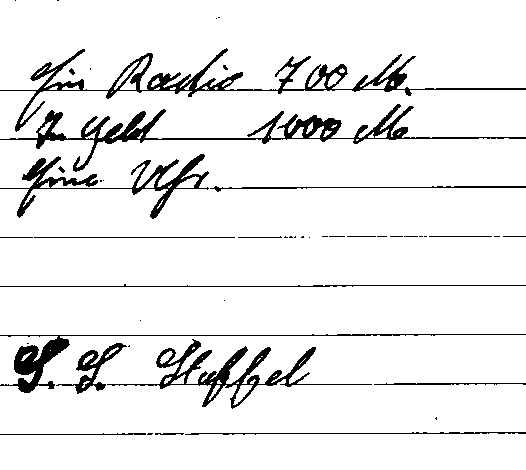 Ein Radio 700 M.
In Geld 1000 M
Eine Uhr.
S. S. Staffel